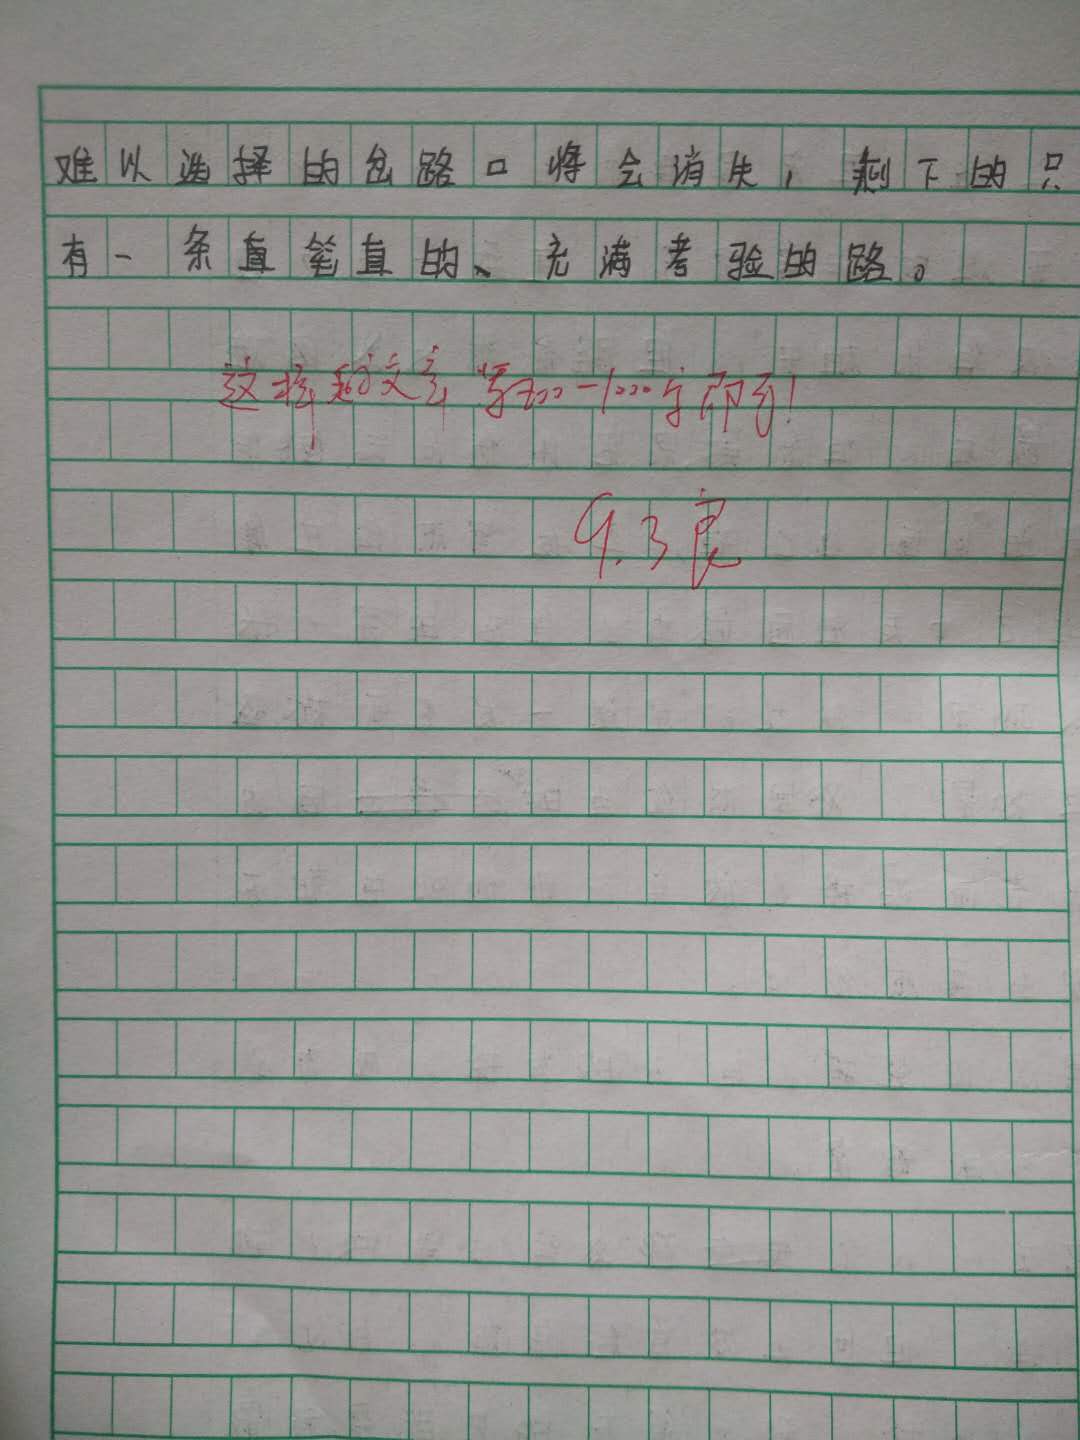 难以选择的岔路口将会消失，剩下的只
有一条直笔直的、充满考验的路。
这样的文章写700-1000字即可！
9.3良